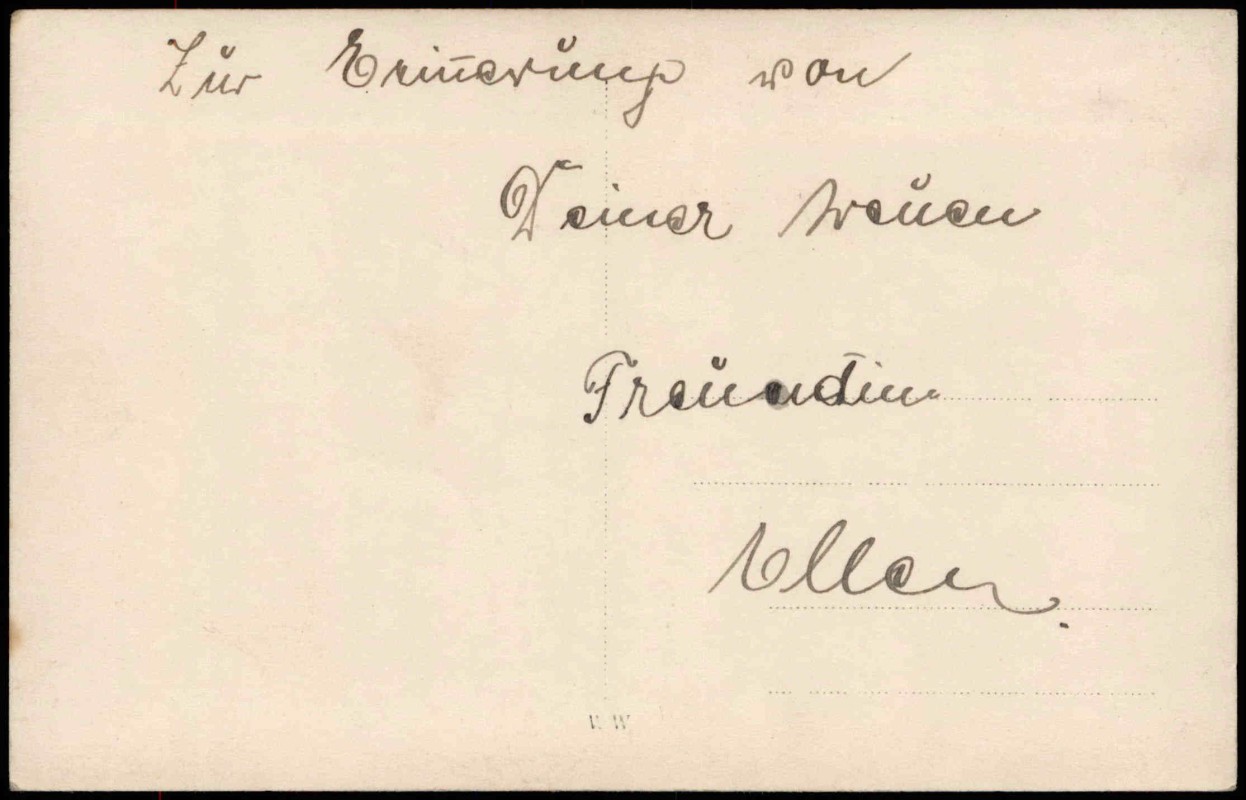 Zur Erinnerung von
Deiner treuen
Freundin
Ellen.